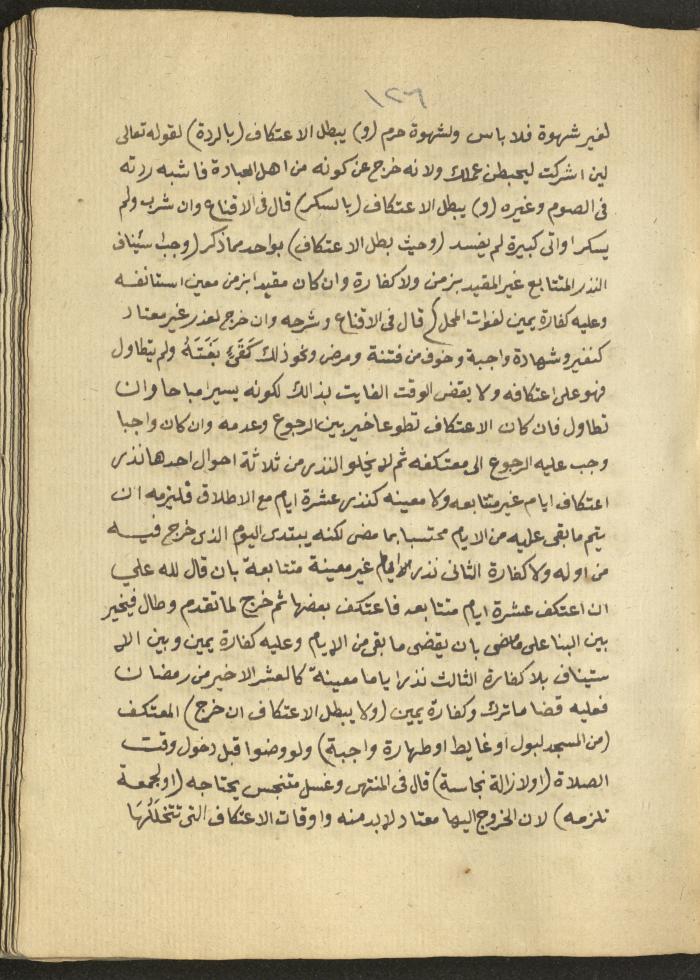 ١٢٦
لغير شهوة فلا باس ولشهوة حرم (و) يبطل الاعتكاف (بالردة) لقوله تعالى
لين اشركت ليحبطن عملك ولانه خرج عن كونه من اهل العبادة فاشبه ردته
فى الصوم وغيره (و) يبطل الاعتكاف (بالسكر) قال فى الاقناع وان شرب ولم
يسكر او اتى كبيرة لم يفسد (وحيث بطل الاعتكاف) بواحد مما ذكر (وجب استيناف
النذر المتتابع غير المقيد بزمن ولا كفارة وان كان مقيدا بزمن معين استانفه
وعليه كفارة يمين لفوات المحل) قال فى الاقناع وشرحه وان خرج لعذر غير معتاد
كنفير وشهادة واجبة وخوف من فتنة ومرض ونحو ذلك كَقَيْءٍ بَغَتَهُ ولم يتطاول
فهو على اعتكافه ولا يقضى الوقت الفايت بذالك لكونه يسيرا مباحا وان
تطاول فان كان الاعتكاف تطوعا خير بين الرجوع وعدمه وان كان واجبا
وجب عليه الرجوع الى معتكفه ثم لا يخلو النذر من ثلاثة احوال احدها نذر
اعتكاف ايام غير متتابعه ولا معينه كنذر عشرة ايام مع الاطلاق فليزمه ان
يتم ما بقى عليه من الايام محتسبا بما مضى لكنه يبتدى اليوم الذى خرج فيه
من اوله ولا كفارة الثانى نذر ايام غير معينة متتابعة بان قال لله علي
ان اعتكف عشرة ايام متتابعه فاعتكف بعضها ثم خرج لما تقدم وطال فيخير
بين البنا على ماضى بان يقضى ما بقى من الايام وعليه كفارة يمين وبين الا
ستيناف بلا كفارة الثالث نذر اياما معينة كالعشر الاخير من رمضان
فعليه قضا ما ترك وكفارة يمين (ولا يبطل الاعتكاف ان خرج) المعتكف
(من المسجد لبول او غايط او طهارة واجبة) ولو وضوا قبل دخول وقت
الصلاة (او لازالة نجاسة) قال فى المنتهى وغسل متنجس يحتاجه (او لجمعة
تلزمه) لان الخروج اليها معتاد لا بد منه واوقات الاعتكاف التى تتخللها